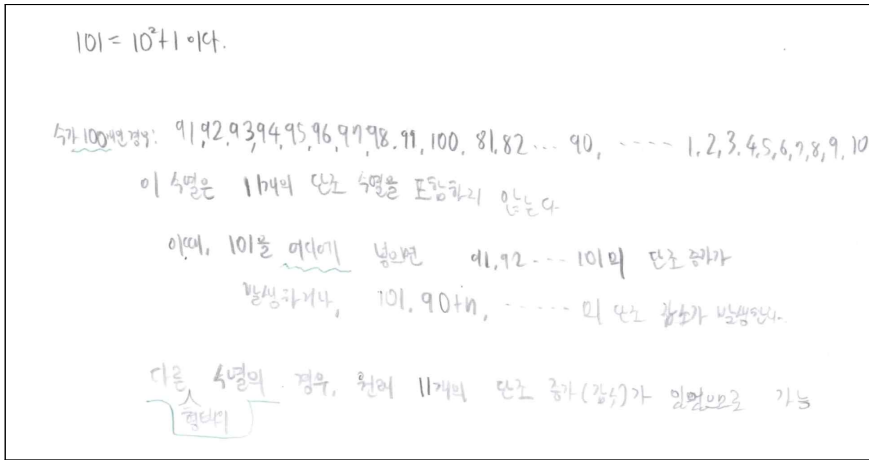 101 = 10²+1 이다.
수가 100개인 경우: 91,92,93,94,95,96,97,98,99,100, 81,82... 90, ···· 1,2,3,4,5,6,7,8,9,10
이 수열은 11개의 단조 수열을 포함하지 않는다.
이때, 101을 어디에 넣으면 91,92 ···· 101의 단조 증가가
발생하거나, 101, 90+n, ······ 의 단조 감소가 발생한다.
다른 수열의 경우, 원래 11개의 단조 증가(감소)가 일렬으로 가능
형태의